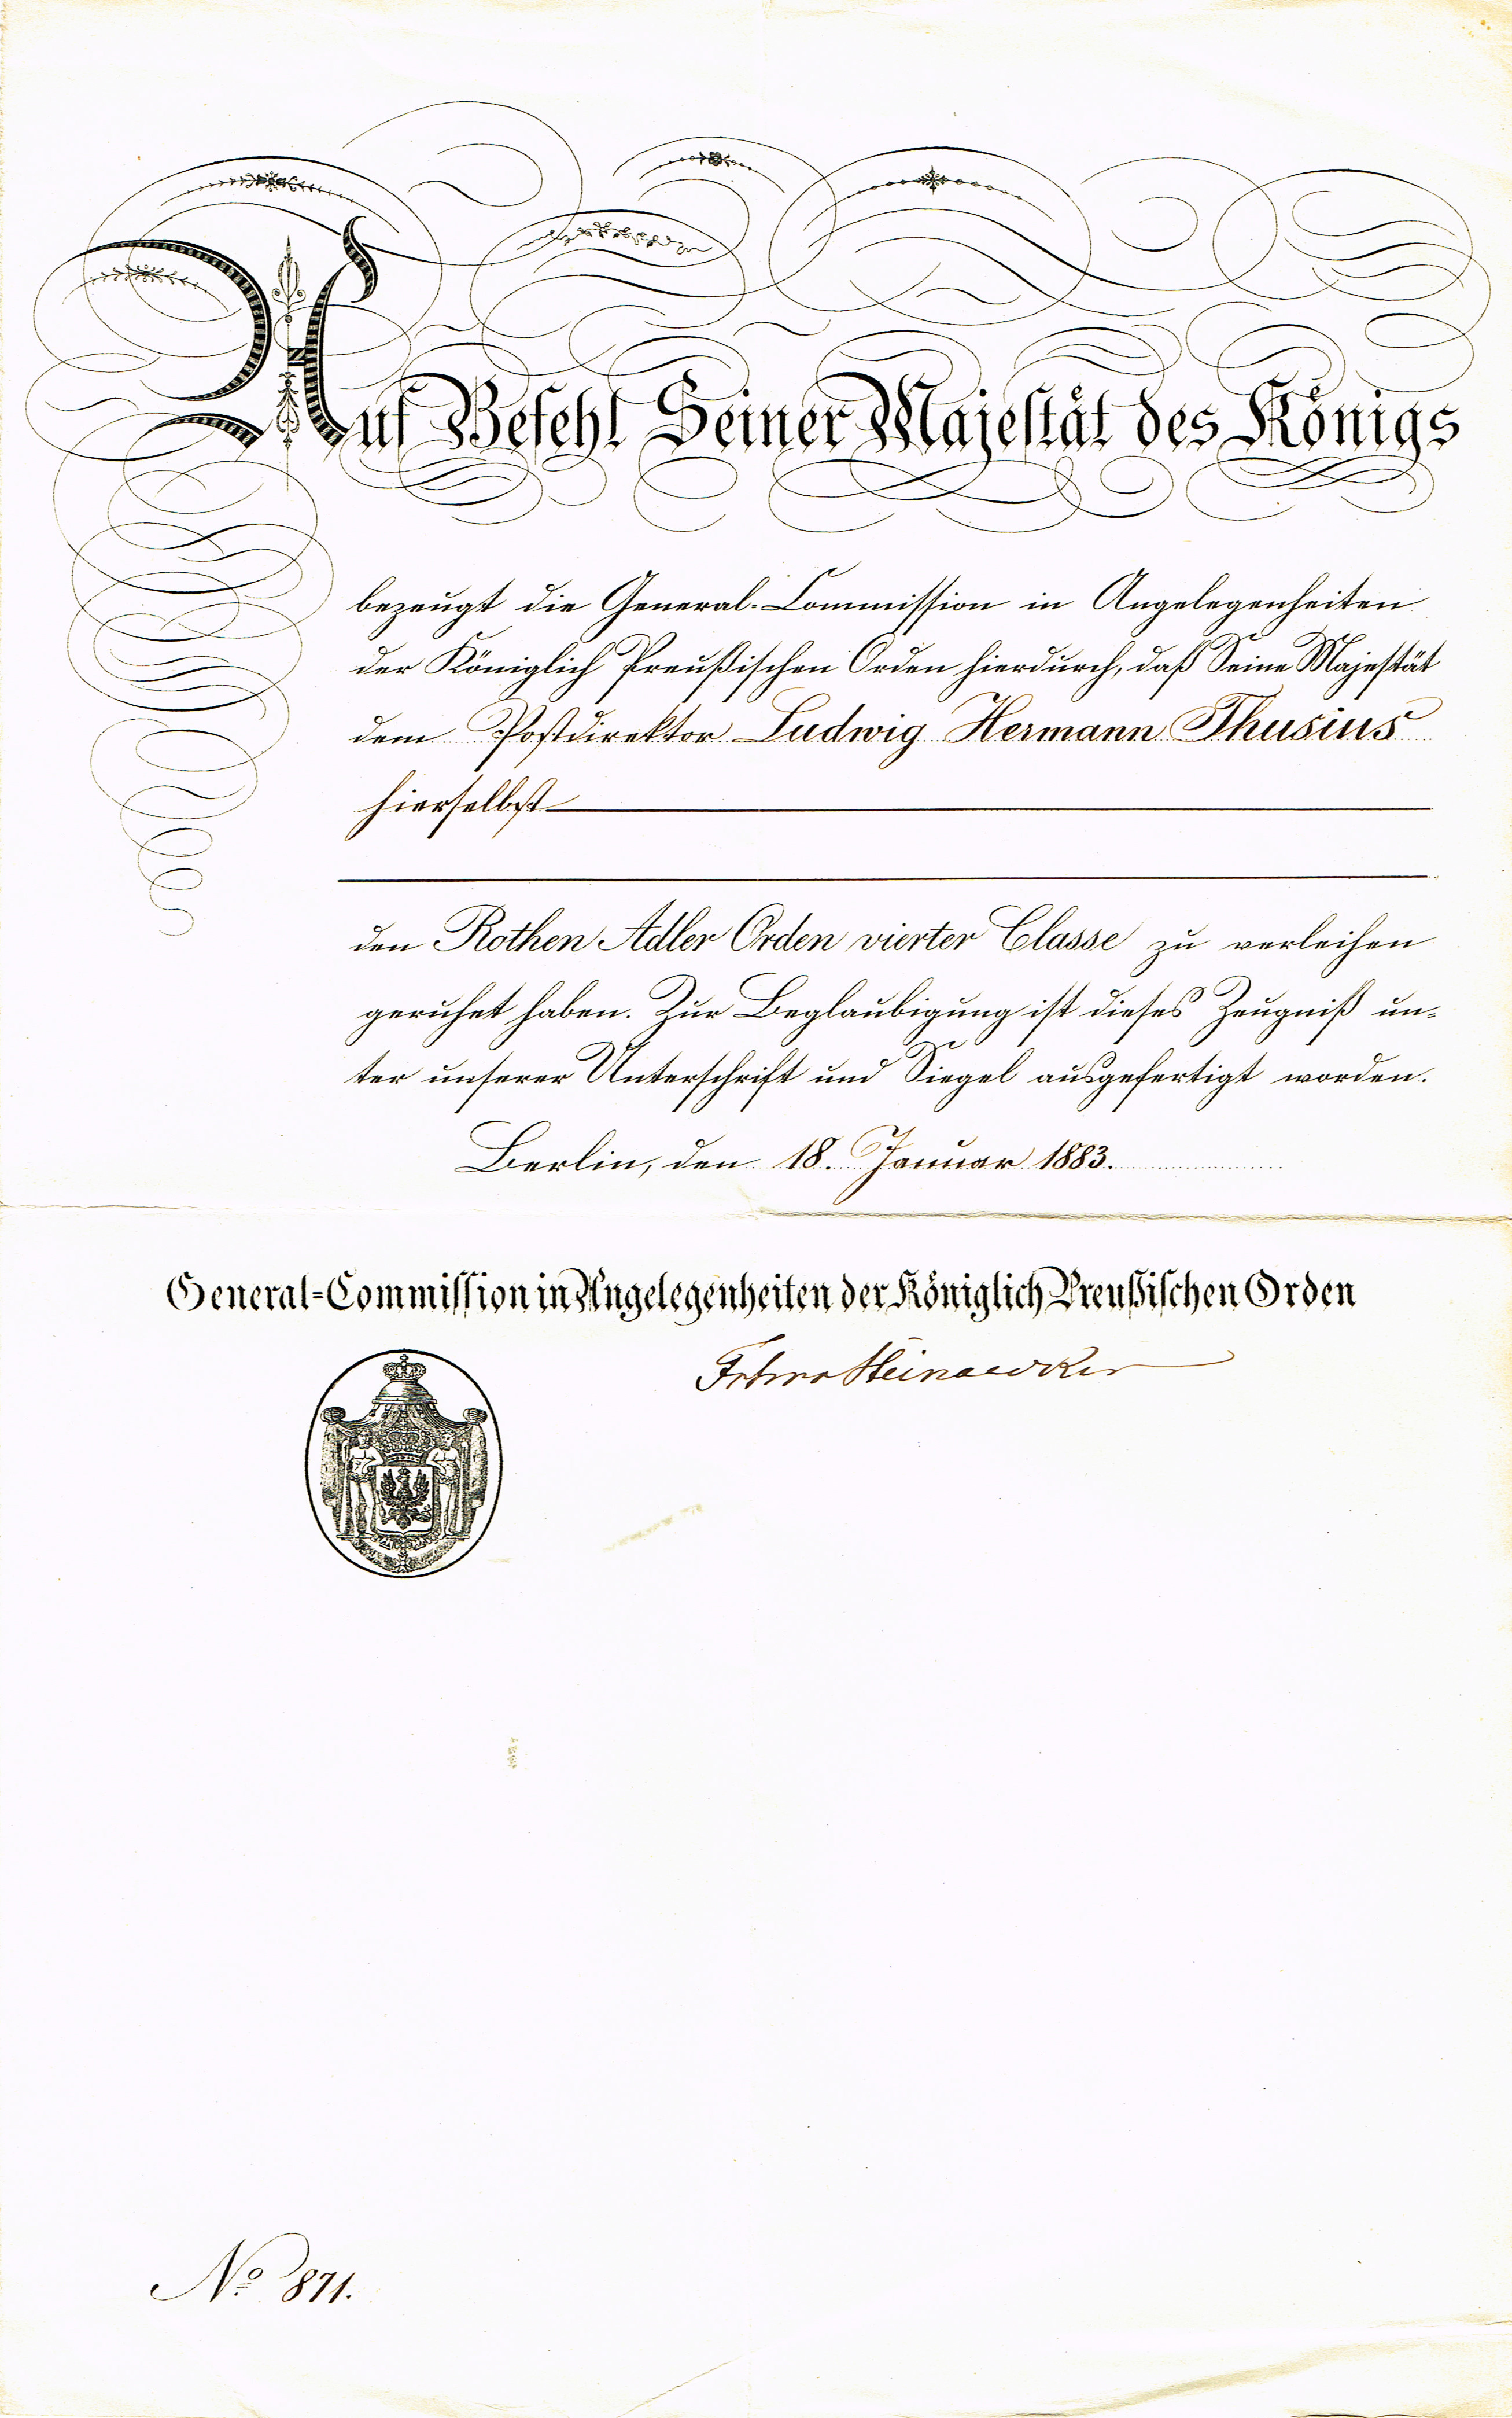 Auf Befehl Seiner Majestät des Königs
bezeugt die General-Commission in Angelegenheiten
der Königlich Preußischen Orden hierdurch, daß Seine Majestät
dem Postdirektor Ludwig Hermann Thusius
hierselbst
den Rothen Adler Orden vierter Classe zu verleihen
geruhet haben. Zur Beglaubigung ist dieses Zeugniß un-
ter unserer Unterschrift und Siegel ausgefertigt worden.
Berlin, den 18. Januar 1883.
General-Commission in Angelegenheiten der Königlich Preußischen Orden
No 871.